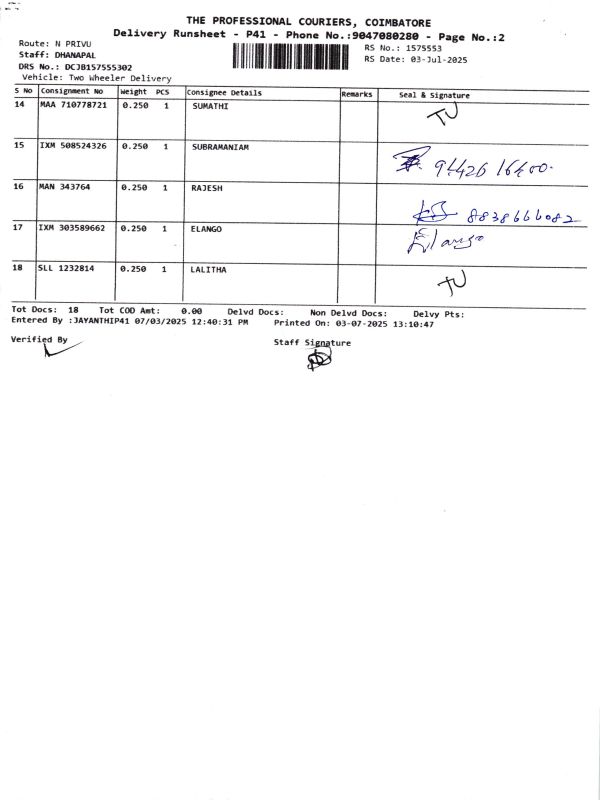 THE PROFESSIONAL COURIERS, COIMBATORE
Delivery Runsheet - P41 - Phone No.:9047080280 - Page No.:2
Route: N PRIVU
RS No.: 1575553
Staff: DHANAPAL
RS Date: 03-Jul-2025
DRS No.: DCJB157555302
Vehicle: Two Wheeler Delivery
S No Consignment No Weight PCS Consignee Details Remarks Seal & Signature
14 MAA 710778721 0.250 1 SUMATHI
TU
15 IXM 508524326 0.250 1 SUBRAMANIAM
94426 16400.
16 MAN 343764 0.250 1 RAJESH
8838666082
17 IXM 303589662 0.250 1 ELANGO
Elango
18 SLL 1232814 0.250 1 LALITHA
TU
Tot Docs: 18 Tot COD Amt: 0.00 Delvd Docs: Non Delvd Docs: Delvy Pts:
Entered By :JAYANTHIP41 07/03/2025 12:40:31 PM Printed On: 03-07-2025 13:10:47
Verified By Staff Signature